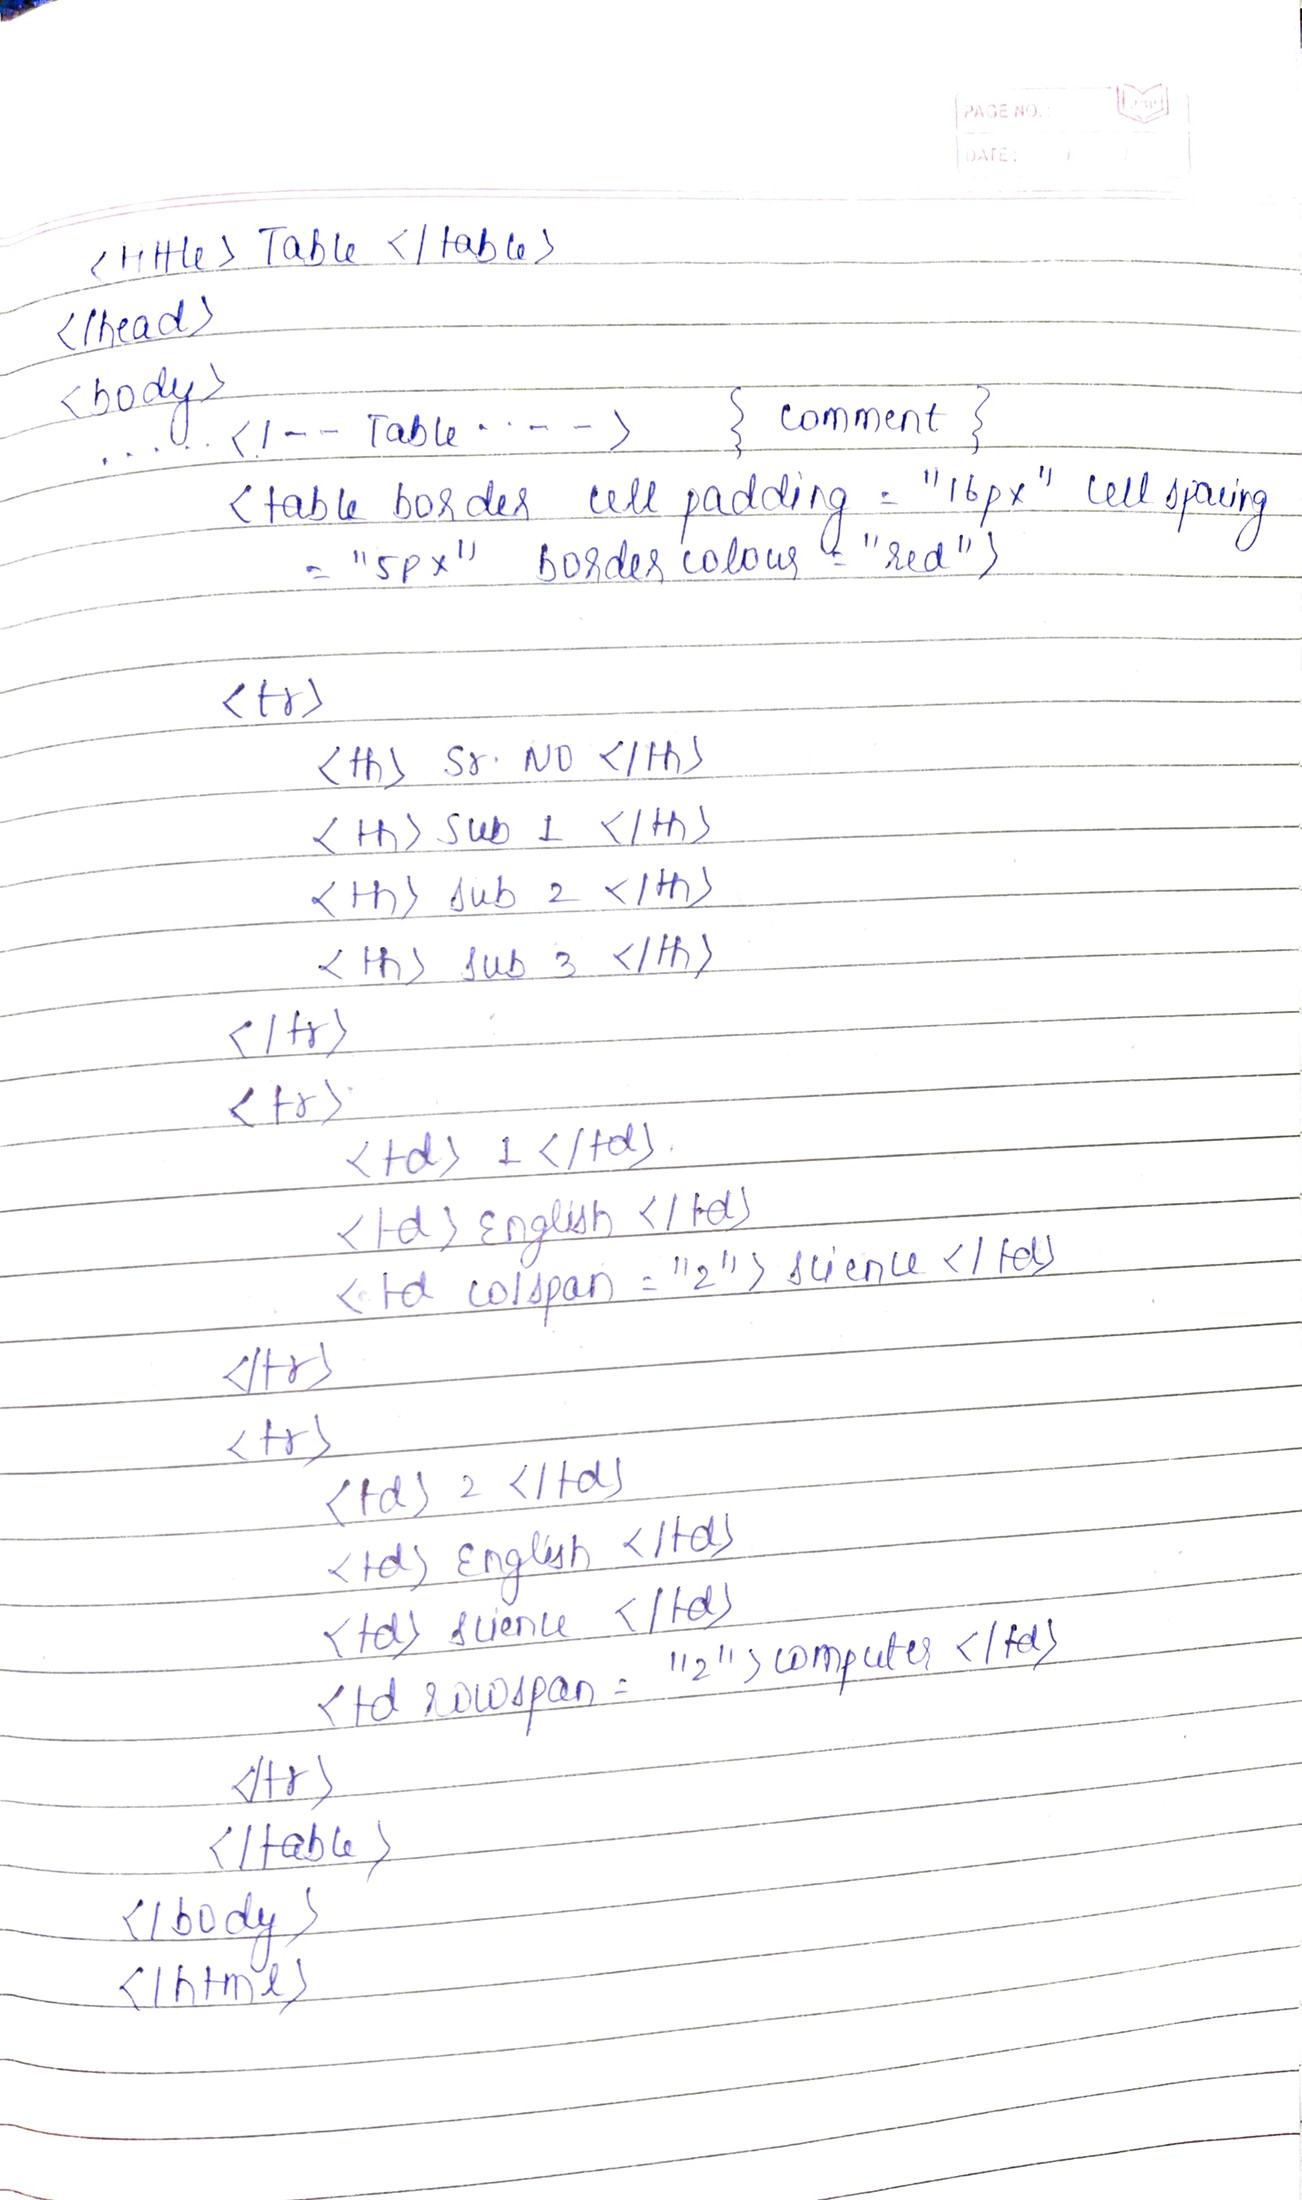 PAGE NO.:
DATE: / /
<tittle> Table </table>
</head>
<body>
...... <!-- Table ..---> { comment }
<table border cell padding = "16px" cell spacing
= "5px" Border colour = "red">
<tr>
<th> Sr. NO </th>
<th> Sub 1 </th>
<th> sub 2 </th>
<th> sub 3 </th>
</tr>
<tr>
<td> 1 </td>
<td> English </td>
<td colspan = "2"> science </td>
</tr>
<tr>
<td> 2 </td>
<td> English </td>
<td> science </td>
<td rowspan = "2"> computer </td>
</tr>
</table>
</body>
</html>